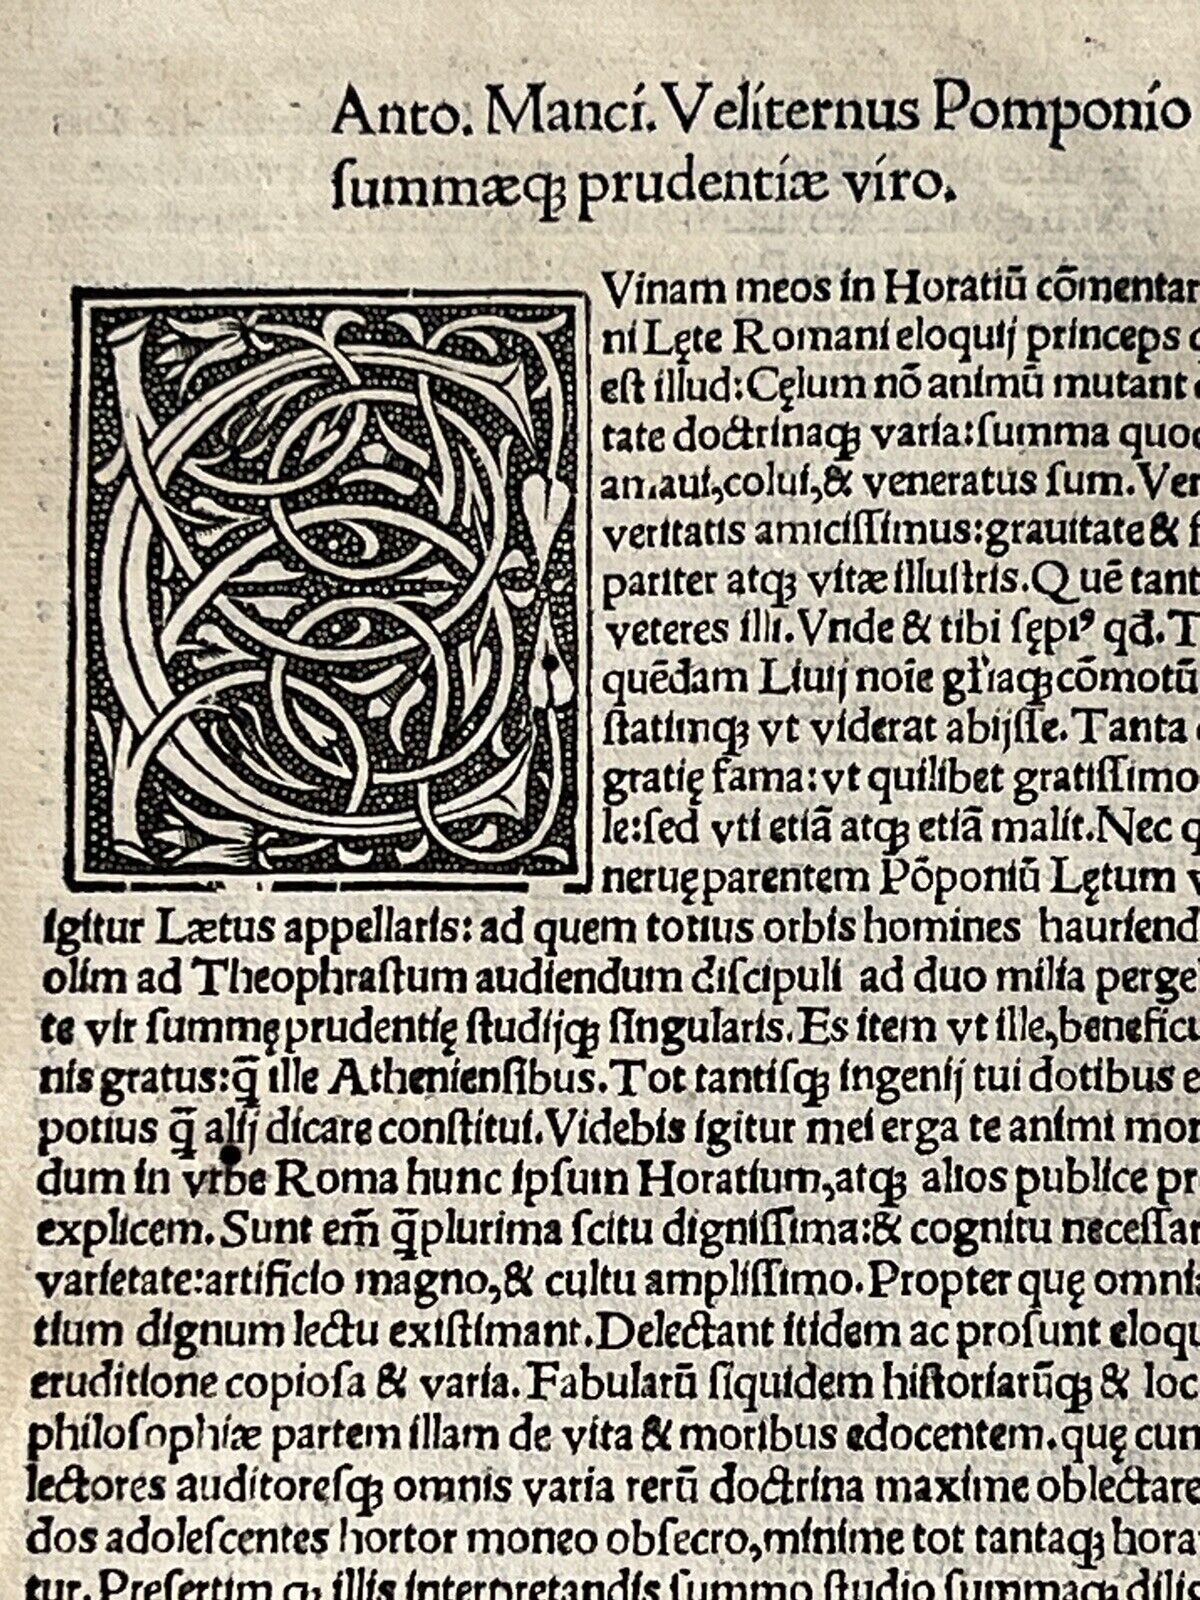 Anto. Manci. Veliternus Pomponio
ſummæqꝫ prudentiæ viro.
Vinam meos in Horatiū cōmentar
ni Lęte Romani eloquij princeps
eſt illud: Cęlum nō animū mutant
tate doctrinaqꝫ varia: ſumma quoq
amaui, colui, & veneratus ſum. Ver
veritatis amiciſſimus: grauitate &
pariter atqꝫ vitæ illuſtris. Quē tant
veteres illi. Vnde & tibi ſępiꝰ qđ. T
quēdam Liuij noīe gl'iaqꝫ cōmotū
ſtatimqꝫ vt viderat abijſſe. Tanta
gratię fama: vt quilibet gratiſſimo
le: ſed vti etiā atqꝫ etiā malit. Nec q
neruę parentem Pōponiū Lętum v
igitur Lætus appellaris: ad quem totius orbis homines hauriend
olim ad Theophraſtum audiendum diſcipuli ad duo milia perge
te vir ſummę prudentię ſtudijqꝫ ſingularis. Es item vt ille, benefic
nis gratus: q̄ ille Athenienſibus. Tot tantiſqꝫ ingenij tui dotibus e
potius q̄ alij dicare conſtitui. Videbis igitur mei erga te animi mor
dum in vrbe Roma hunc ipſum Horatium, atqꝫ alios publice pr
explicem. Sunt em̄ q̄plurima ſcitu digniſſima: & cognitu neceſſar
varietate: artificio magno, & cultu ampliſſimo. Propter quę omni
tium dignum lectu exiſtimant. Delectant itidem ac proſunt eloqu
eruditione copioſa & varia. Fabularū ſiquidem hiſtoriarūqꝫ & loc
philoſophiæ partem illam de vita & moribus edocentem. quę cum
lectores auditoreſqꝫ omnis varia rerū doctrina maxime oblectare
dos adoleſcentes hortor moneo obſecro, minime tot tantaqꝫ hora
tur. Preſertim qꝫ illis interpretandis ſummo ſtudio ſummaqꝫ dilig